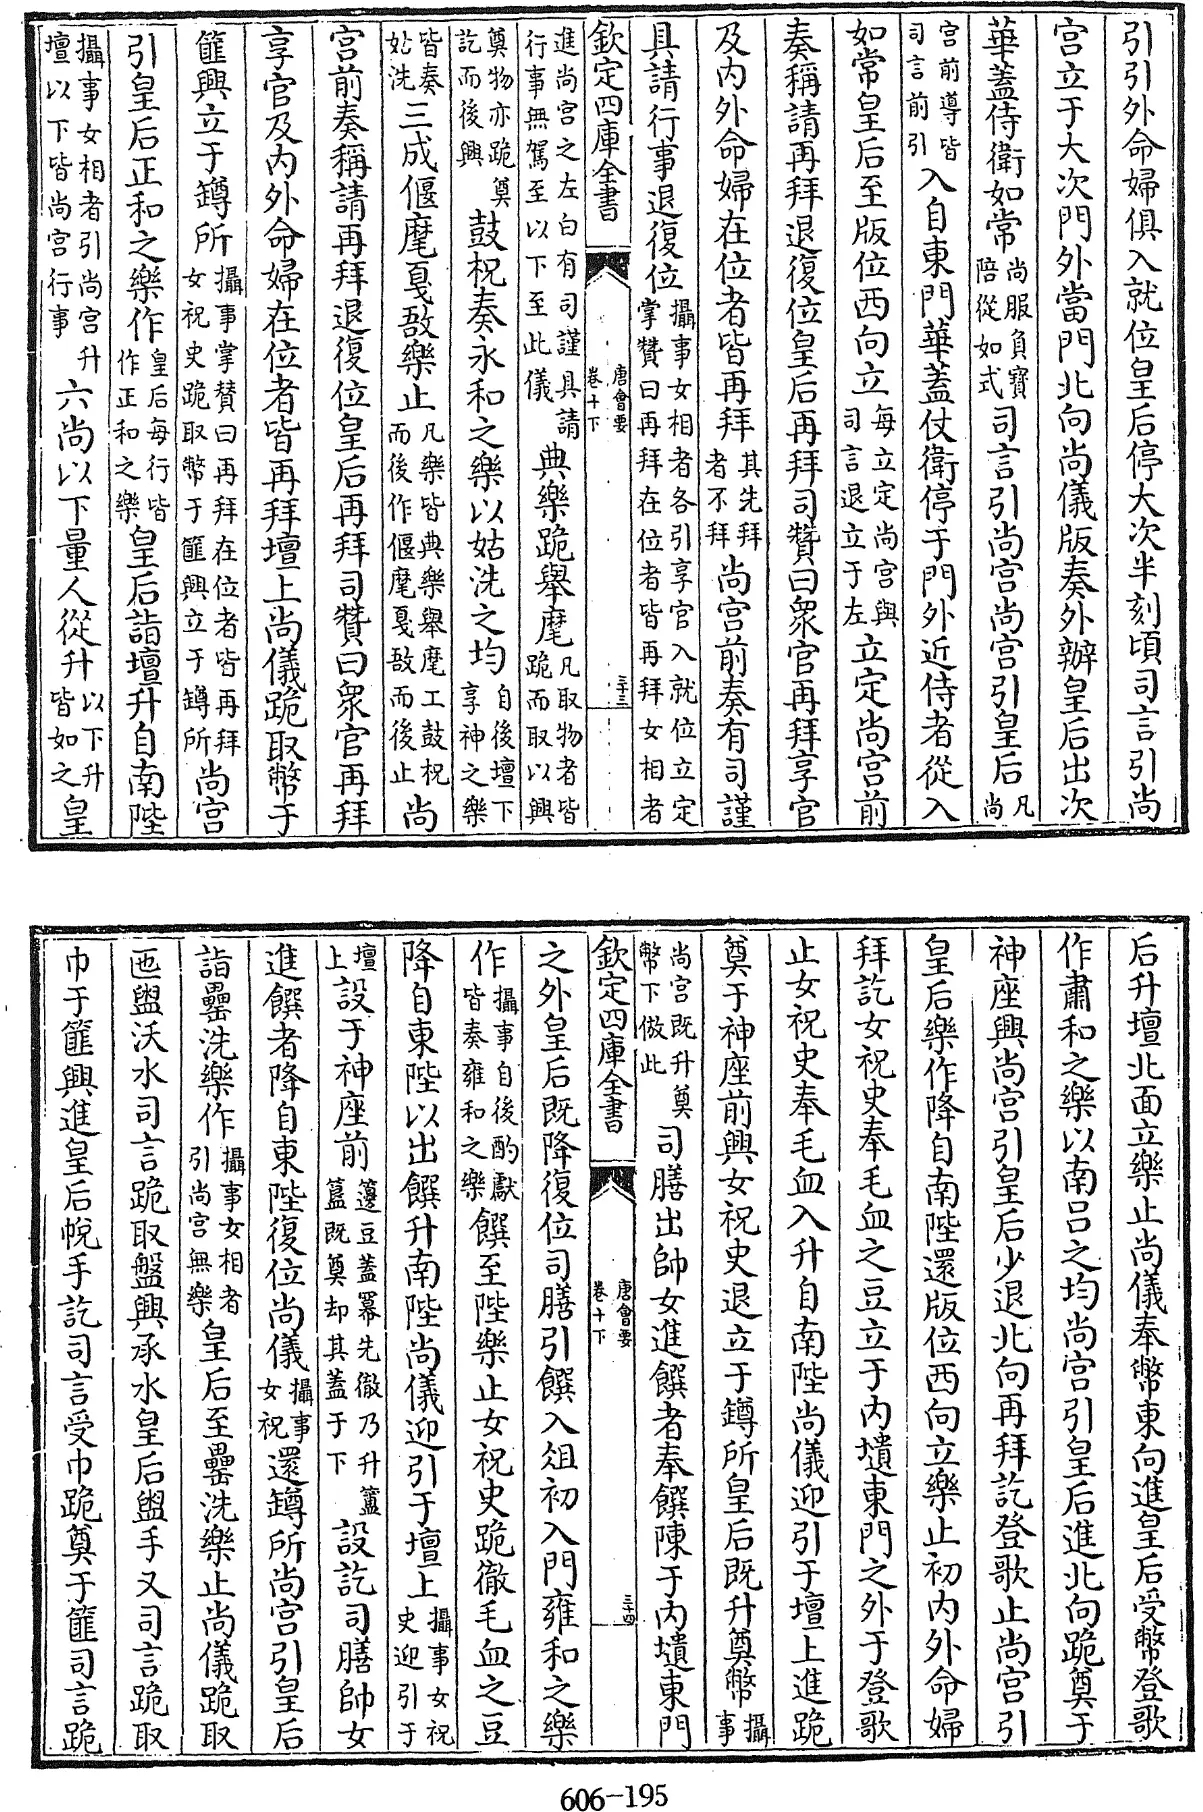 引引外命婦俱入就位皇后停大次半刻頃司言引尚
宫立于大次門外當門北向尚儀版奏外辦皇后出次
華蓋侍衛如常尚服負寶陪從如式司言引尚宫尚宫引皇后凡尚
宫前導皆司言前引入自東門華蓋仗衛停于門外近侍者從入
如常皇后至版位西向立每立定尚宫與司言退立于左立定尚宫前
奏稱請再拜退復位皇后再拜司贊曰衆官再拜享官
及内外命婦在位者皆再拜其先拜者不拜尚宫前奏有司謹
具請行事退復位攝事女相者各引享官入就位立定掌贊曰再拜在位者皆再拜女相者
欽定四庫全書
唐會要
卷十下
三十三
進尚宫之左白有司謹具請行事無駕至以下至此儀典樂跪舉麾凡取物者皆跪而取以興
奠物亦跪奠訖而後興鼓柷奏永和之樂以姑洗之均自後壇下享神之樂
皆奏姑洗三成偃麾戛敔樂止凡樂皆典樂舉麾工鼓柷而後作偃麾戛敔而後止尚
宫前奏稱請再拜退復位皇后再拜司贊曰衆官再拜
享官及内外命婦在位者皆再拜壇上尚儀跪取幣于
篚興立于罇所攝事掌贊曰再拜在位者皆再拜女祝史跪取幣于篚興立于罇所尚宫
引皇后正和之樂作皇后每行皆作正和之樂皇后詣壇升自南陛
攝事女相者引尚宫升壇以下皆尚宫行事六尚以下量人從升以下升皆如之皇
后升壇北面立樂止尚儀奉幣東向進皇后受幣登歌
作肅和之樂以南呂之均尚宫引皇后進北向跪奠于
神座興尚宫引皇后少退北向再拜訖登歌止尚宫引
皇后樂作降自南陛還版位西向立樂止初内外命婦
拜訖女祝史奉毛血之豆立于内壝東門之外于登歌
止女祝史奉毛血入升自南陛尚儀迎引于壇上進跪
奠于神座前興女祝史退立于罇所皇后既升奠幣攝事
尚宫既升奠幣下倣此司膳出帥女進饌者奉饌陳于内壝東門
欽定四庫全書
唐會要
卷十下
三十四
之外皇后既降復位司膳引饌入俎初入門雍和之樂
作攝事自後酌獻皆奏雍和之樂饌至陛樂止女祝史跪徹毛血之豆
降自東陛以出饌升南陛尚儀迎引于壇上攝事女祝史迎引于
壇上設于神座前籩豆蓋羃先徹乃升簠簋既奠却其蓋于下設訖司膳帥女
進饌者降自東陛復位尚儀攝事女祝還罇所尚宫引皇后
詣罍洗樂作攝事女相者引尚宫無樂皇后至罍洗樂止尚儀跪取
匜盥沃水司言跪取盤興承水皇后盥手又司言跪取
巾于篚興進皇后帨手訖司言受巾跪奠于篚司言跪
606-195